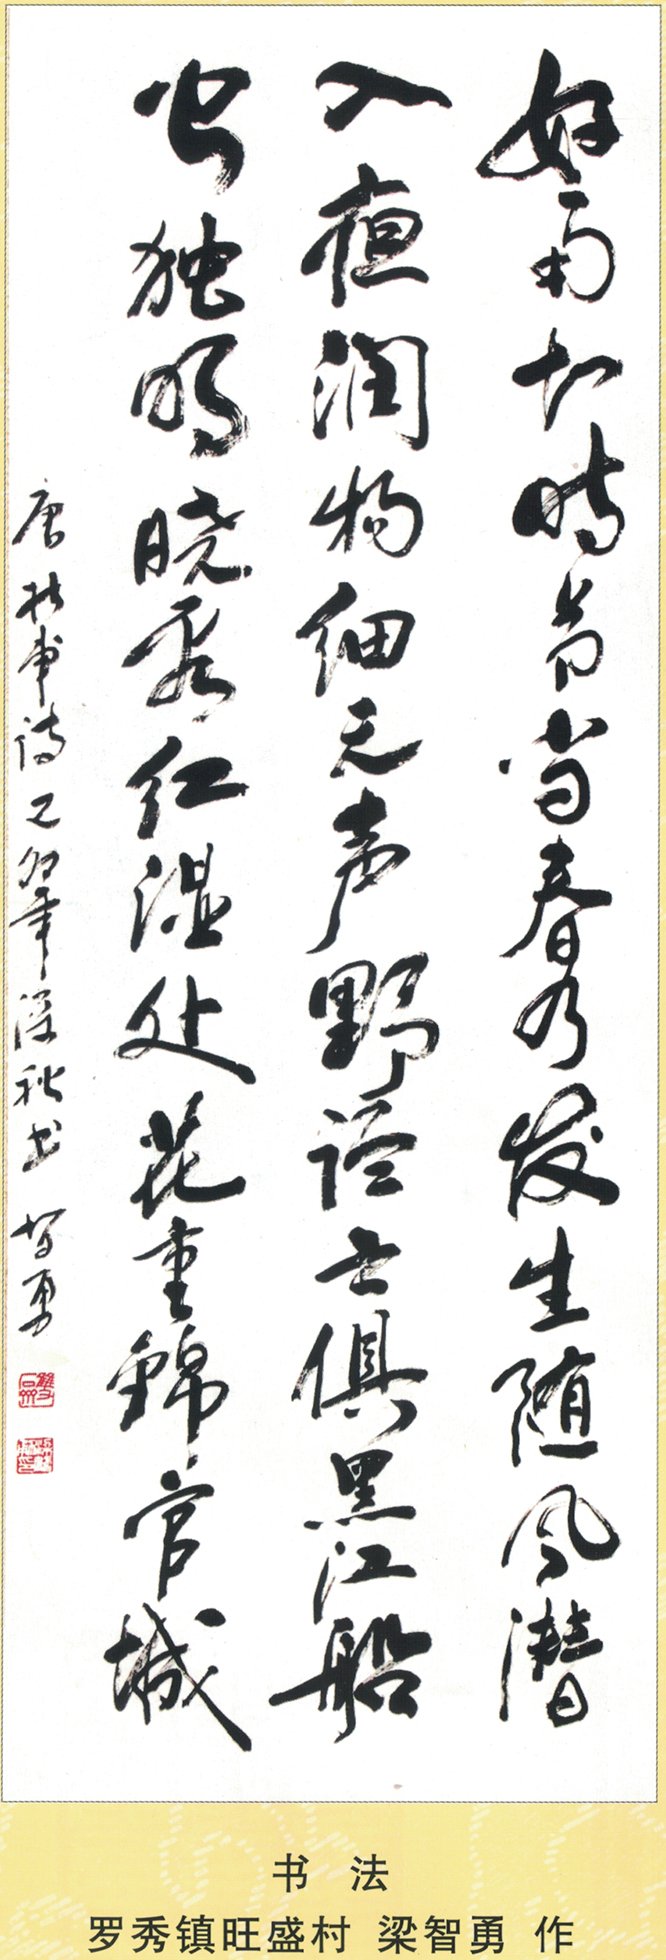 好雨知时节当春乃发生随风潜
入夜润物细无声野径云俱黑江船
火独明晓看红湿处花重錦官城
唐杜甫诗己卯年深秋书 智勇
书 法
罗秀镇旺盛村 梁智勇 作